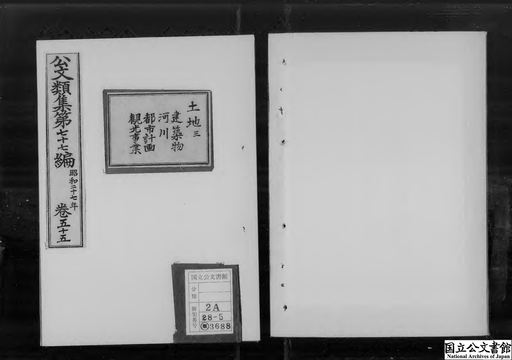 公文類集第七十七編
昭和二十七年
巻五十五
土地三
建築物
河川
都市計画
観光事業
国立公文書館
分類
2A
28-5
3688
国立公文書館
National Archives of Japan